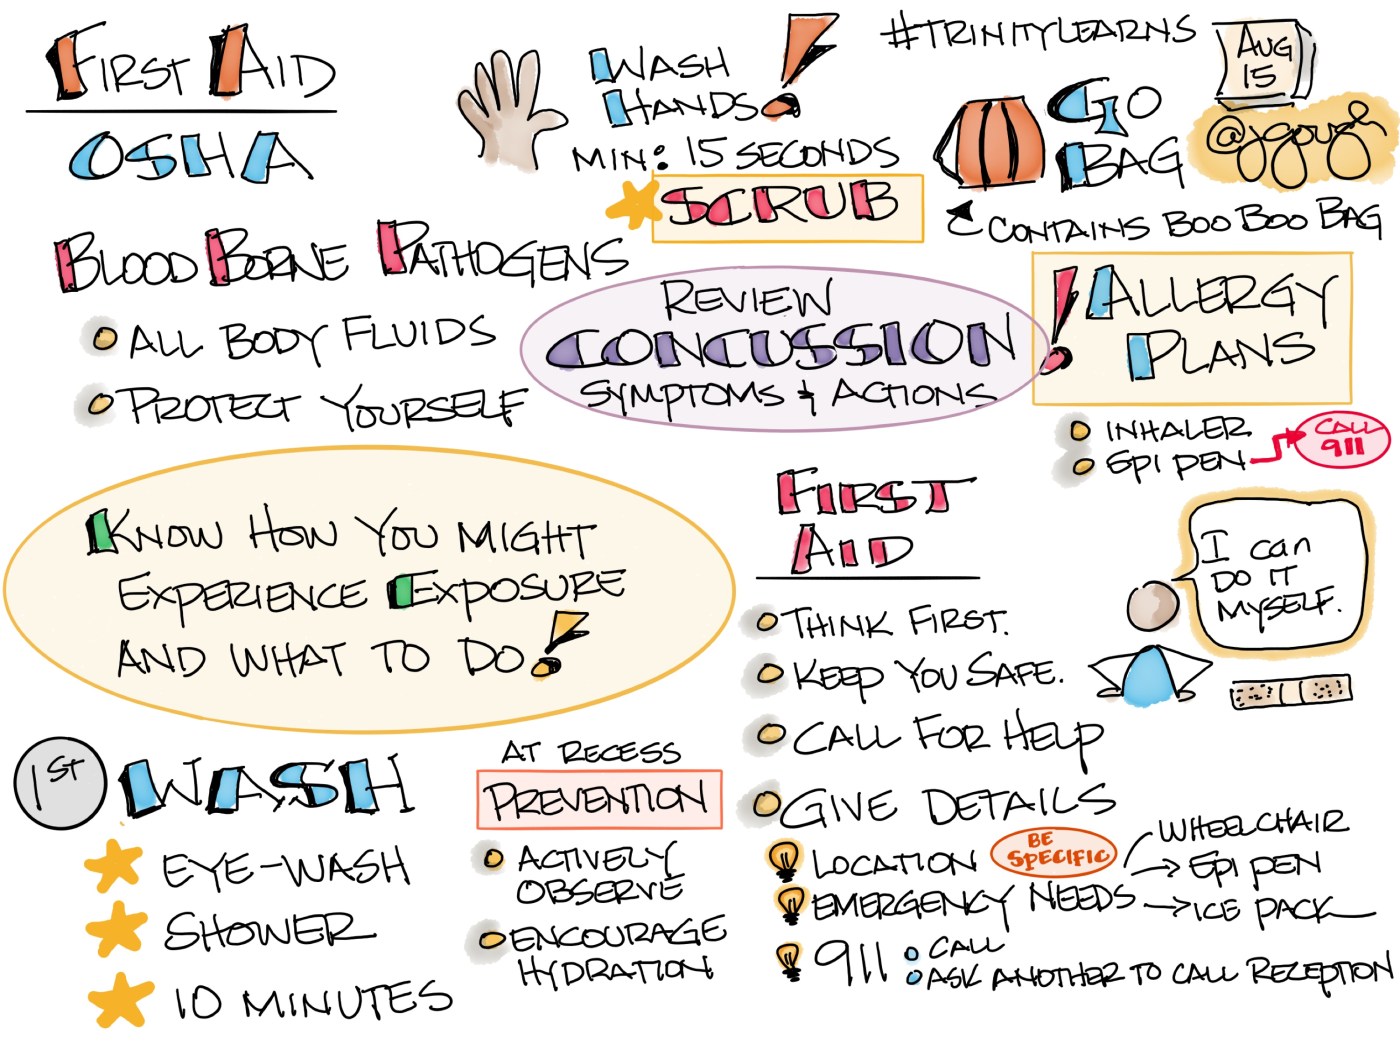 FIRST AID
OSHA
BLOOD BORNE PATHOGENS
ALL BODY FLUIDS
PROTECT YOURSELF
WASH
HANDS!
MIN: 15 SECONDS
SCRUB
#TRINITYLEARNS
AUG
15
@jgough
GO
BAG
CONTAINS BOO BOO BAG
REVIEW
CONCUSSION
SYMPTOMS & ACTIONS
! ALLERGY
PLANS
INHALER
EPI PEN
CALL
911
KNOW HOW YOU MIGHT
EXPERIENCE EXPOSURE
AND WHAT TO DO!
1ST WASH
EYE-WASH
SHOWER
10 MINUTES
AT RECESS
PREVENTION
ACTIVELY
OBSERVE
ENCOURAGE
HYDRATION
FIRST
AID
THINK FIRST.
KEEP YOU SAFE.
CALL FOR HELP
GIVE DETAILS
LOCATION
BE
SPECIFIC
EMERGENCY NEEDS
WHEELCHAIR
EPI PEN
ICE PACK
911
CALL
ASK ANOTHER TO CALL RECEPTION
I can
DO IT
MYSELF.